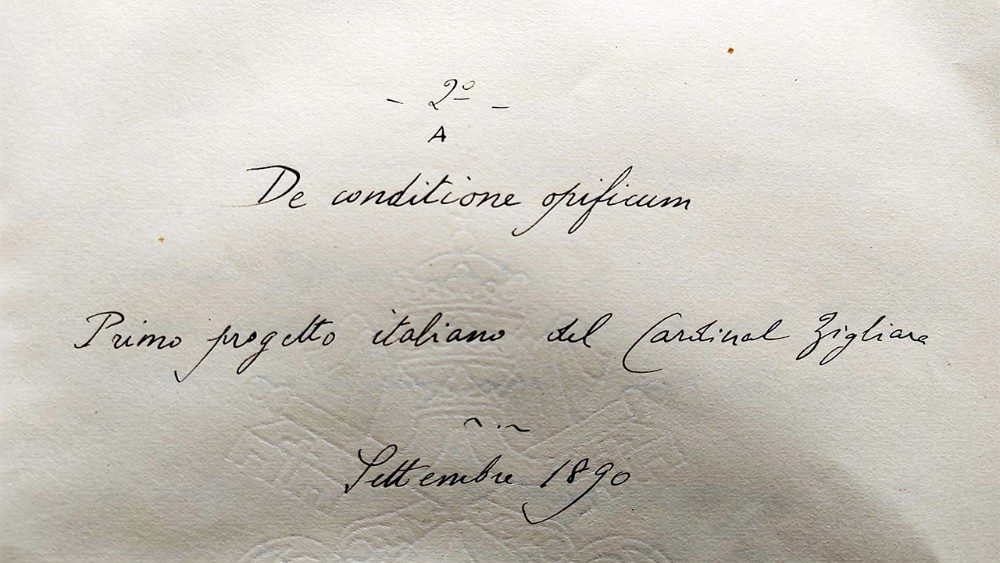 - 2º -
A
De conditione opificum
Primo progetto italiano del Cardinal Zigliara
Settembre 1890